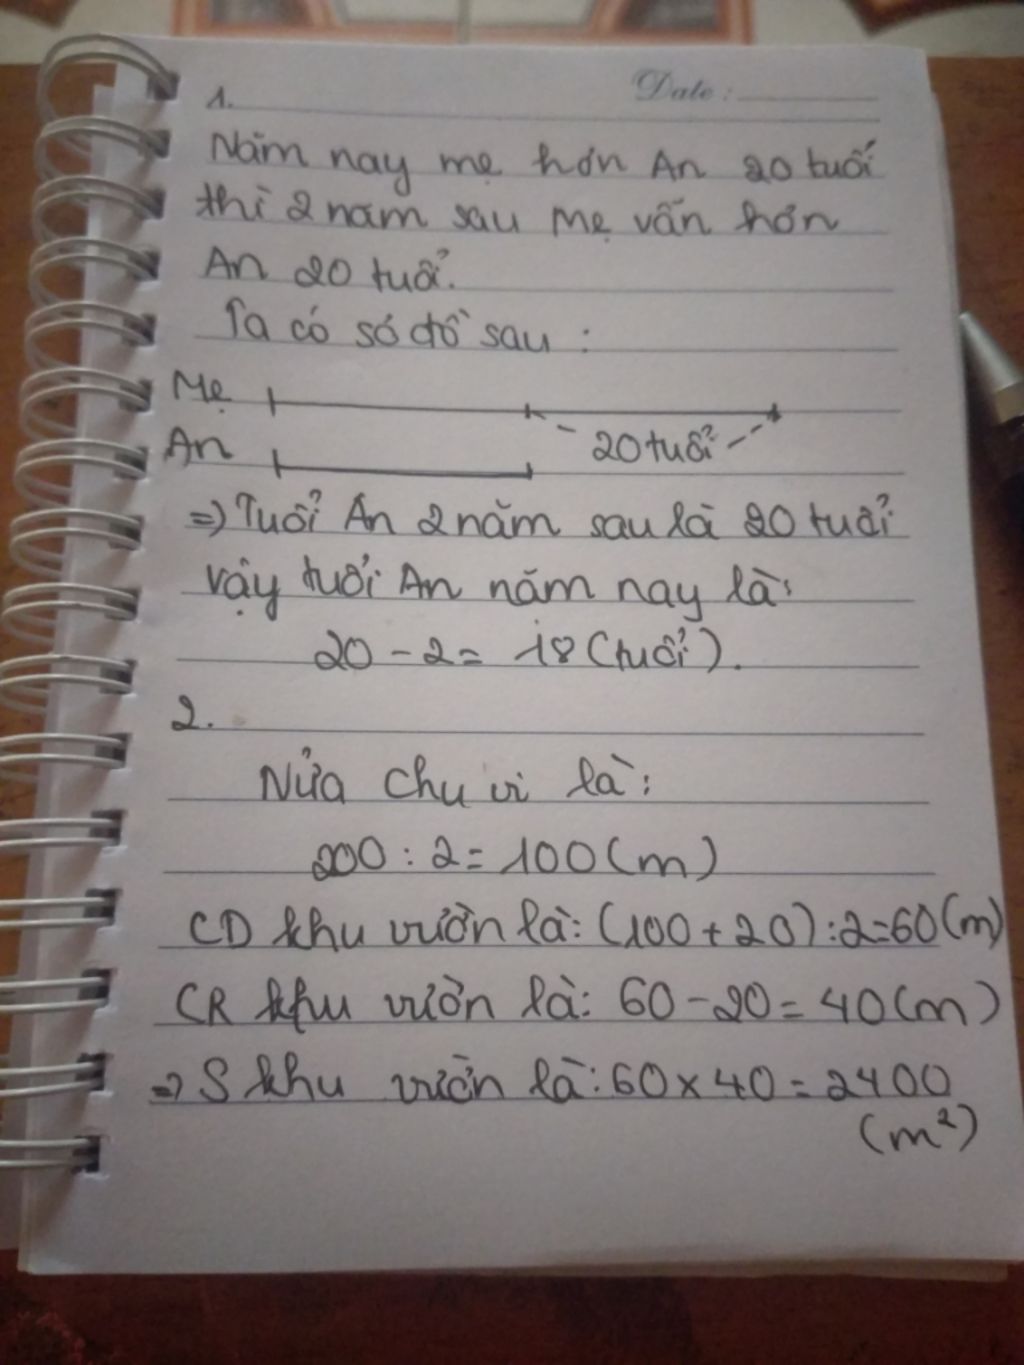 Date :
1.
Năm nay mẹ hơn An 20 tuổi
thì 2 năm sau Mẹ vẫn hơn
An 20 tuổi.
Ta có sơ đồ sau :
Mẹ
20 tuổi
An
=> Tuổi An 2 năm sau là 20 tuổi
vậy tuổi An năm nay là:
20 - 2 = 18 (tuổi).
2.
Nửa chu vi là:
200 : 2 = 100 (m)
CD khu vườn là: (100 + 20) : 2 = 60 (m)
CR khu vườn là: 60 - 20 = 40 (m)
=> S khu vườn là: 60 x 40 = 2400
(m²)